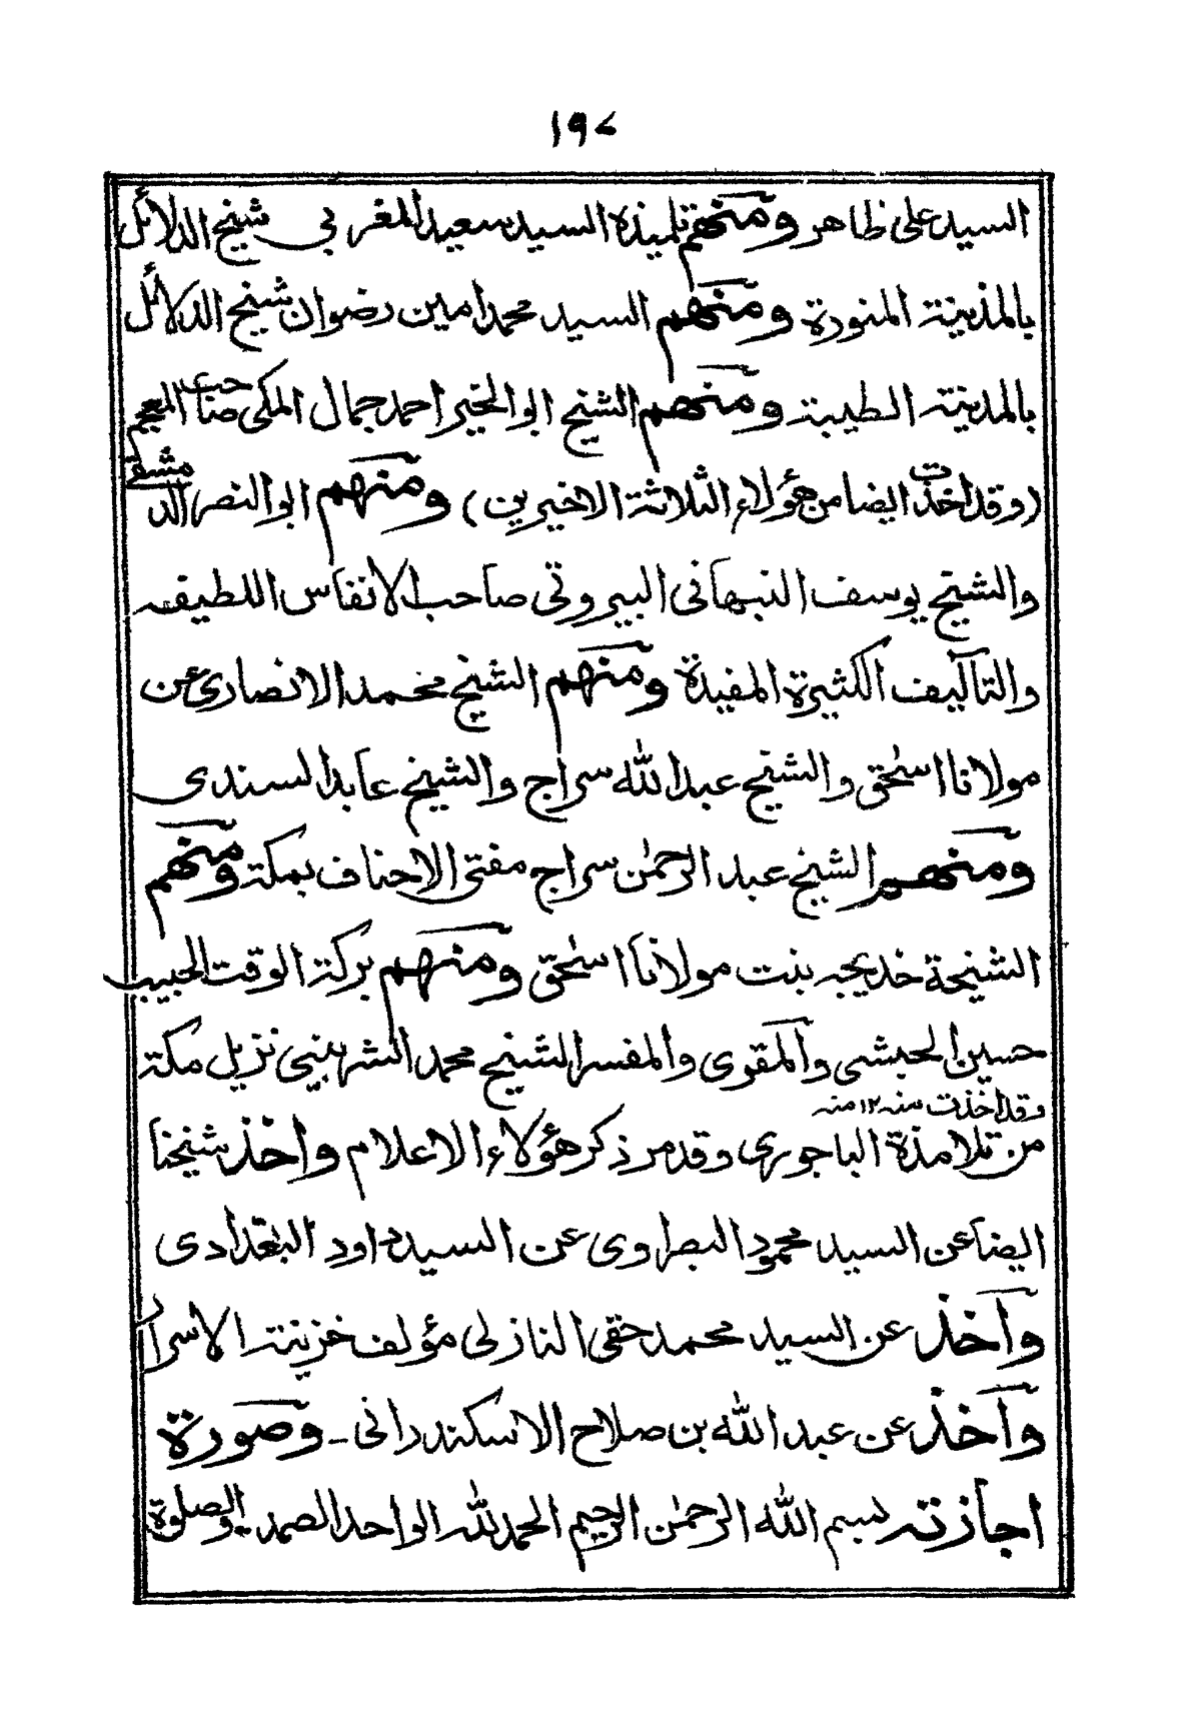 ١٩٧
السيد على ظاهر ومنهم تلميذه السيد سعيد المغربي شيخ الدلائل
بالمدينة المنورة ومنهم السيد محمد امين رضوان شيخ الدلائل
بالمدينة الطيبة ومنهم الشيخ ابو الخير احمد جمال المكى صاحب المعجم
(وقد اخذت ايضا من هؤلاء الثلاثة الاخيرين) ومنهم ابو النصر الدمشقي
والشيخ يوسف النبهانى البيروتى صاحب الانفاس اللطيفه
والتآليف الكثيرة المفيدة ومنهم الشيخ محمد الانصارى عن
مولانا اسحٰق والشيخ عبد الله سراج والشيخ عابد السندى
ومنهم الشيخ عبد الرحمٰن سراج مفتى الاحناف بمكة ومنهم
الشيخة خديجه بنت مولانا اسحٰق ومنهم بركة الوقت الحبيب
حسين الحبشى والمقرى والمفسر الشيخ محمد الشربينى نزيل مكة
وقد اخذت منه ١٢ منه
من تلامذة الباجورى وقد مر ذكر هؤلاء الاعلام واخذ شيخنا
ايضا عن السيد محمود البصراوى عن السيد داود البغدادى
واخذ عن السيد محمد حقى النازلى مؤلف خزينة الاسرار
واخذ عن عبد الله بن صلاح الاسكندرانى ـ وصورة
اجازته بسم الله الرحمٰن الرحيم الحمد لله الواحد الصمد والصلوة